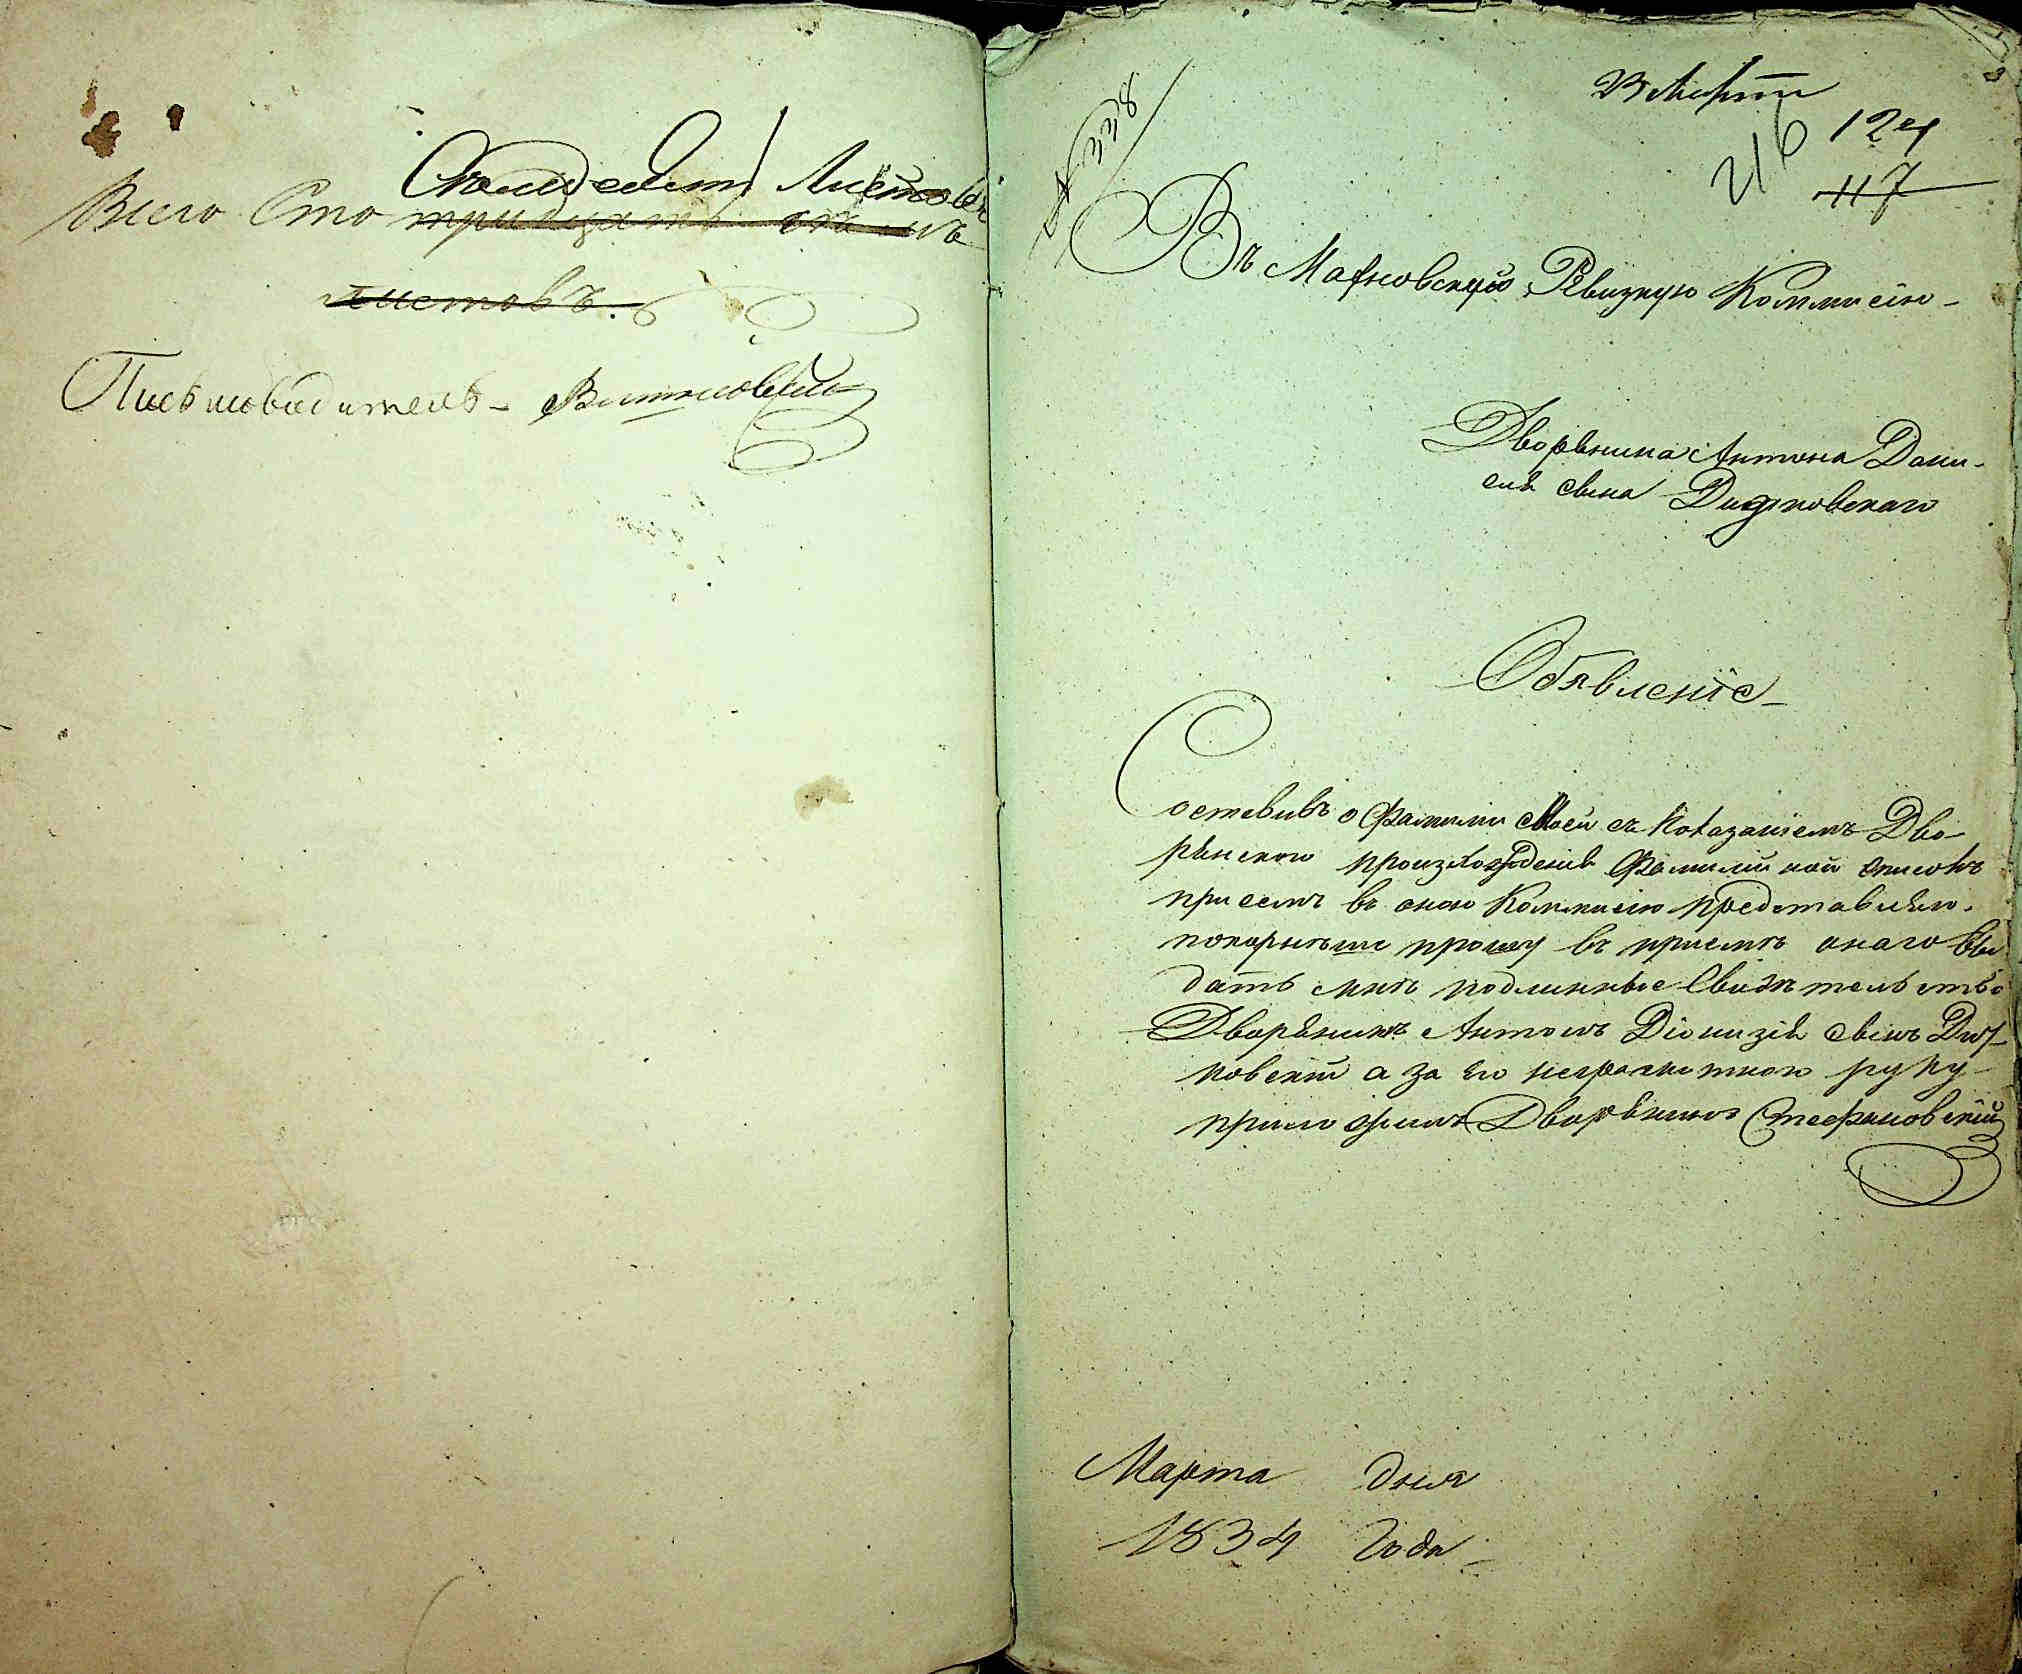 Листовъ
Всего Сто тридцать
листовъ.
Письмоводитель - Витковскій
№ 338
23 Марта
216
124
117
Въ Махновскую Ревизкую Коммисію -
Дворянина Антона Дани-
еля сына Дидковскаго
Обявленіе -
Составивъ о Фамиліи Моей съ показаніемъ Дво-
рянскаго произхожденія Фамилійной списокъ
при семъ въ оною Коммисію представляю.
покорнѣише прошу въ приемѣ онаго вы-
дать мнѣ подлинные Свидѣтельство
Дворянинъ Антонъ Діонизія сынъ Дид-
ковскій а за его неграмотною руку
приложилъ Дворянинъ Стефановскій
Марта дня
1834 Года -